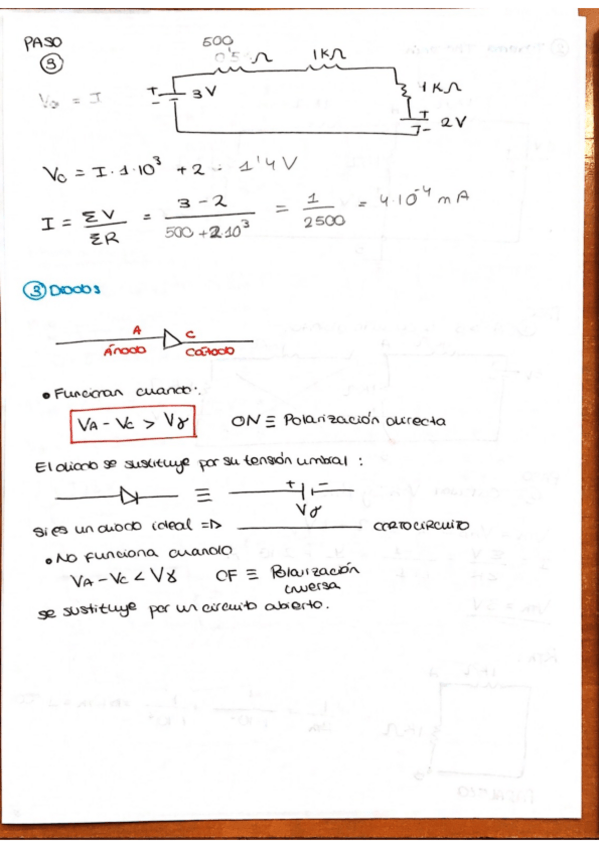 PASO
③
500
0'5 Ω
1KΩ
+ - 3V
1KΩ
+ - 2V
Vo = I
Vc = I · 1 · 10³ + 2 = 1'4V
I = ΣV/ΣR = 3 - 2 / 500 + 2 10³ = 1/2500 = 4·10⁻⁴ mA
③ Diodos
A C
Ánodo Cátodo
• Funcionan cuando:
VA - Vc > Vγ ON ≡ Polarización directa
El diodo se sustituye por su tensión umbral :
≡ + - Vγ
si es un diodo ideal => CORTOCIRCUITO
• No funciona cuando
VA - Vc < Vγ OF ≡ Polarización
inversa
se sustituye por un circuito abierto.